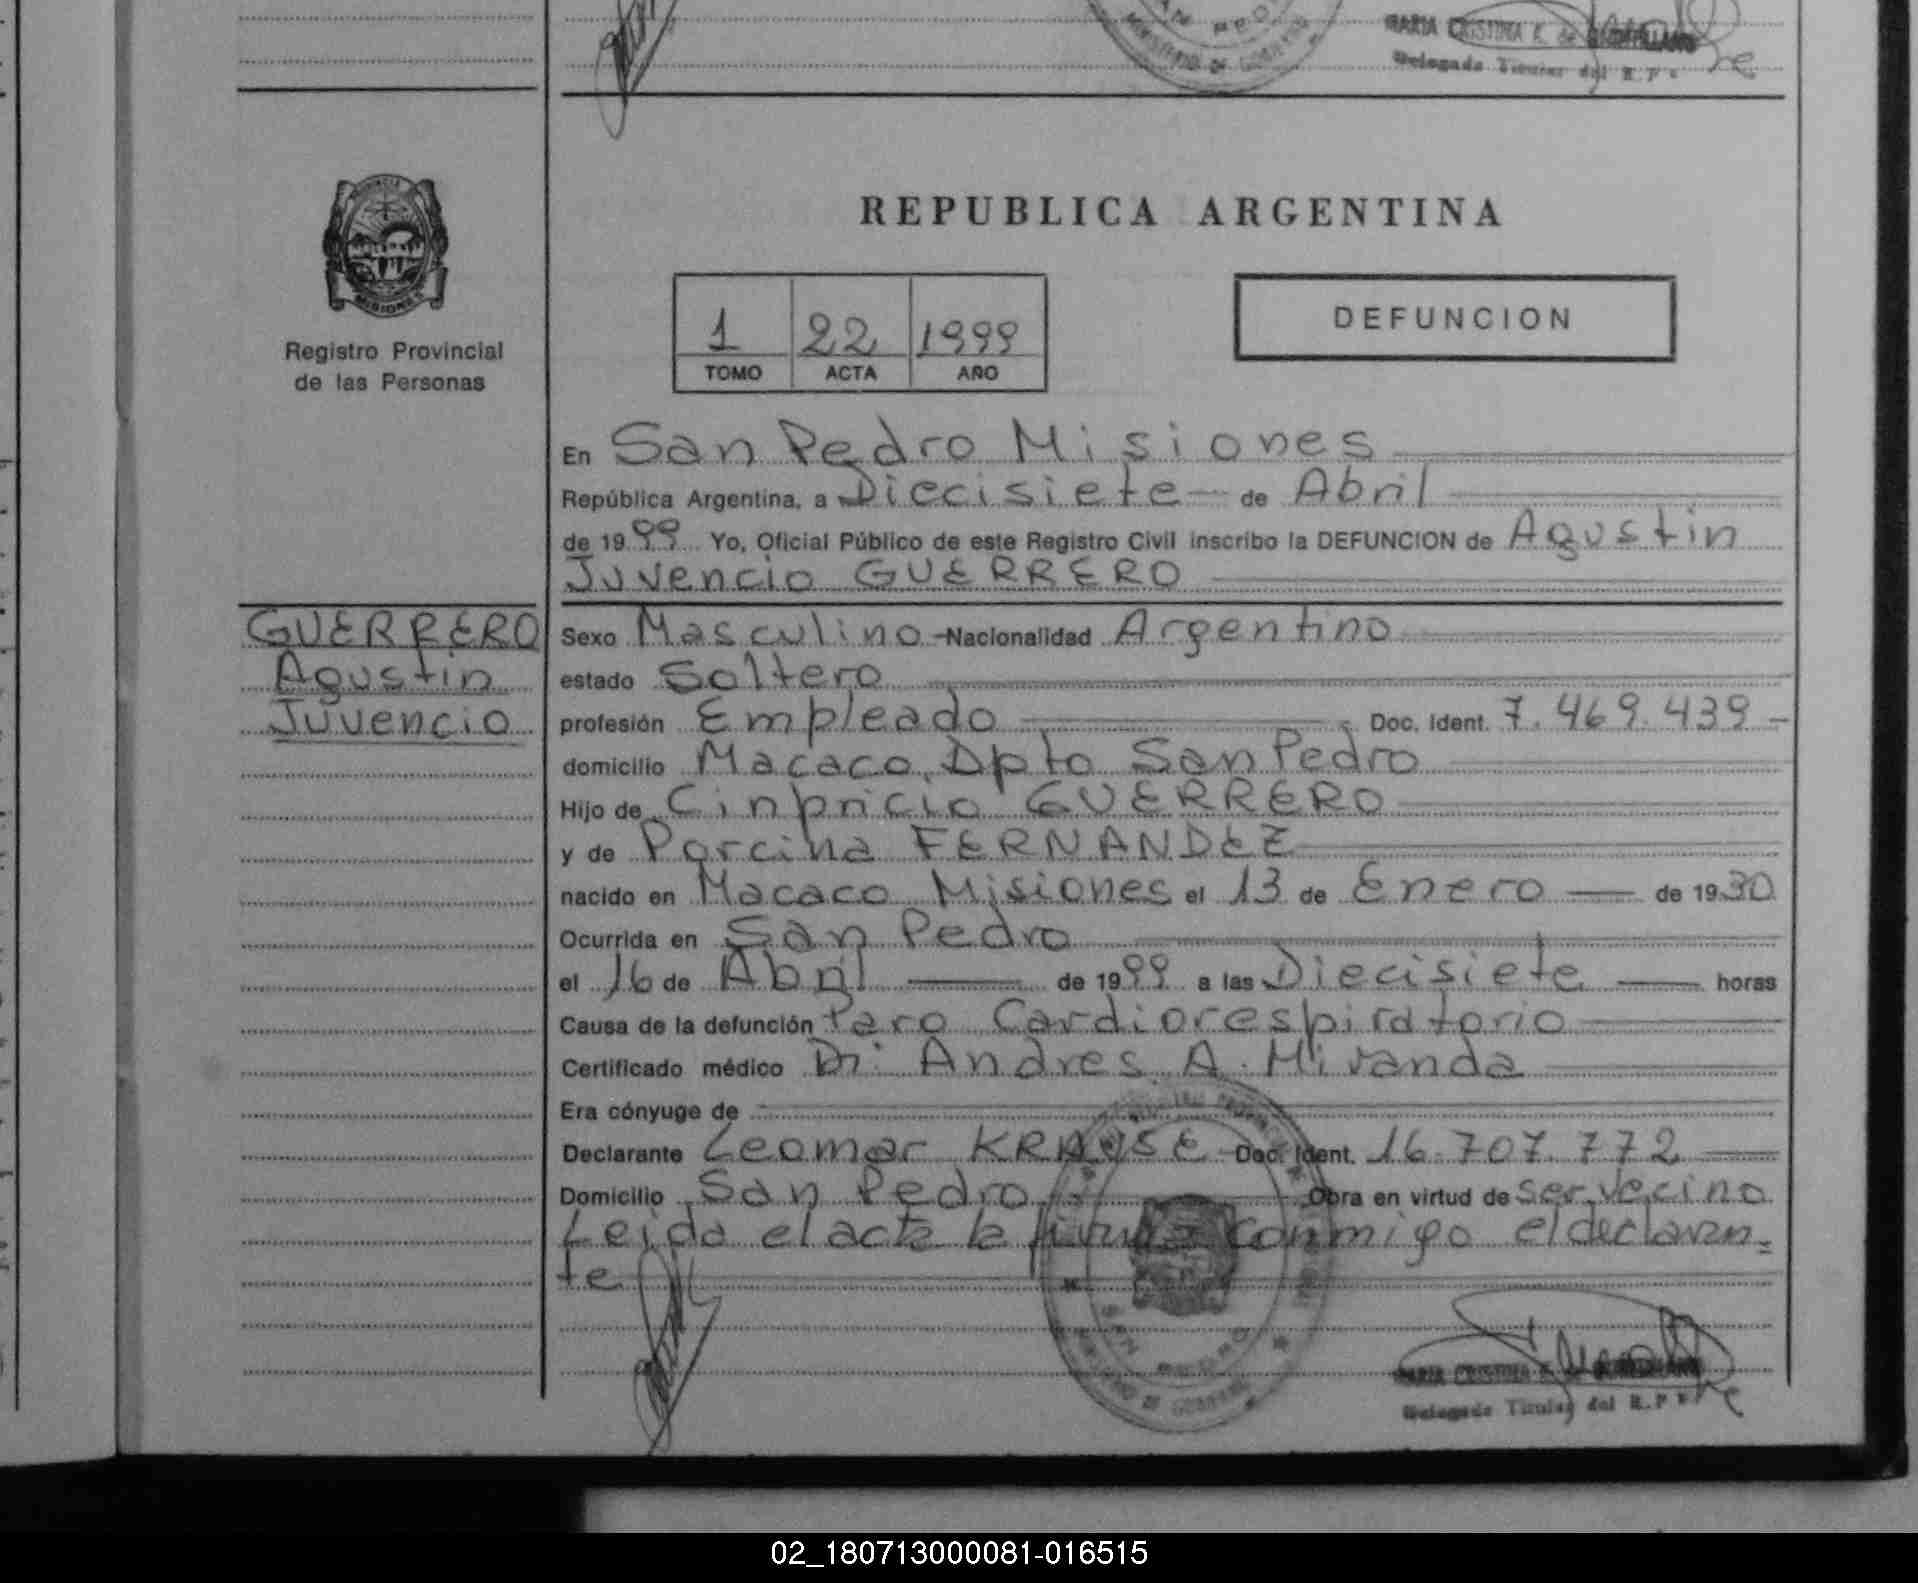 MARIA CRISTINA K. de
Delegada Titular del R.P.
MINISTERIO DE GOBIERNO
PROVINCIA
MISIONES
Registro Provincial
de las Personas
REPUBLICA ARGENTINA
1 22 1999
TOMO ACTA AÑO
DEFUNCION
En San Pedro Misiones
República Argentina, a Diecisiete de Abril
de 1999 Yo, Oficial Público de este Registro Civil inscribo la DEFUNCION de Agustin
Juvencio GUERRERO
GUERRERO
Agustin
Juvencio
Sexo Masculino - Nacionalidad Argentino
estado Soltero
profesión Empleado Doc. Ident. 7.469.439 -
domicilio Macaco, Dpto San Pedro
Hijo de Cinpricio GUERRERO
y de Porcina FERNANDEZ
nacido en Macaco Misiones el 13 de Enero de 1930
Ocurrida en San Pedro
el 16 de Abril de 1999 a las Diecisiete horas
Causa de la defunción Paro Cardiorespiratorio
Certificado médico Dr. Andres A. Miranda
Era cónyuge de
Declarante Leomar KRAUSE Doc. Ident. 16.707.772
Domicilio San Pedro Obra en virtud de ser vecino
Leida el acta la firma conmigo el declaran=
te
SAN PEDRO
MINISTERIO DE GOBIERNO
MARIA CRISTINA K.
Delegada Titular del R.P.
02_180713000081-016515